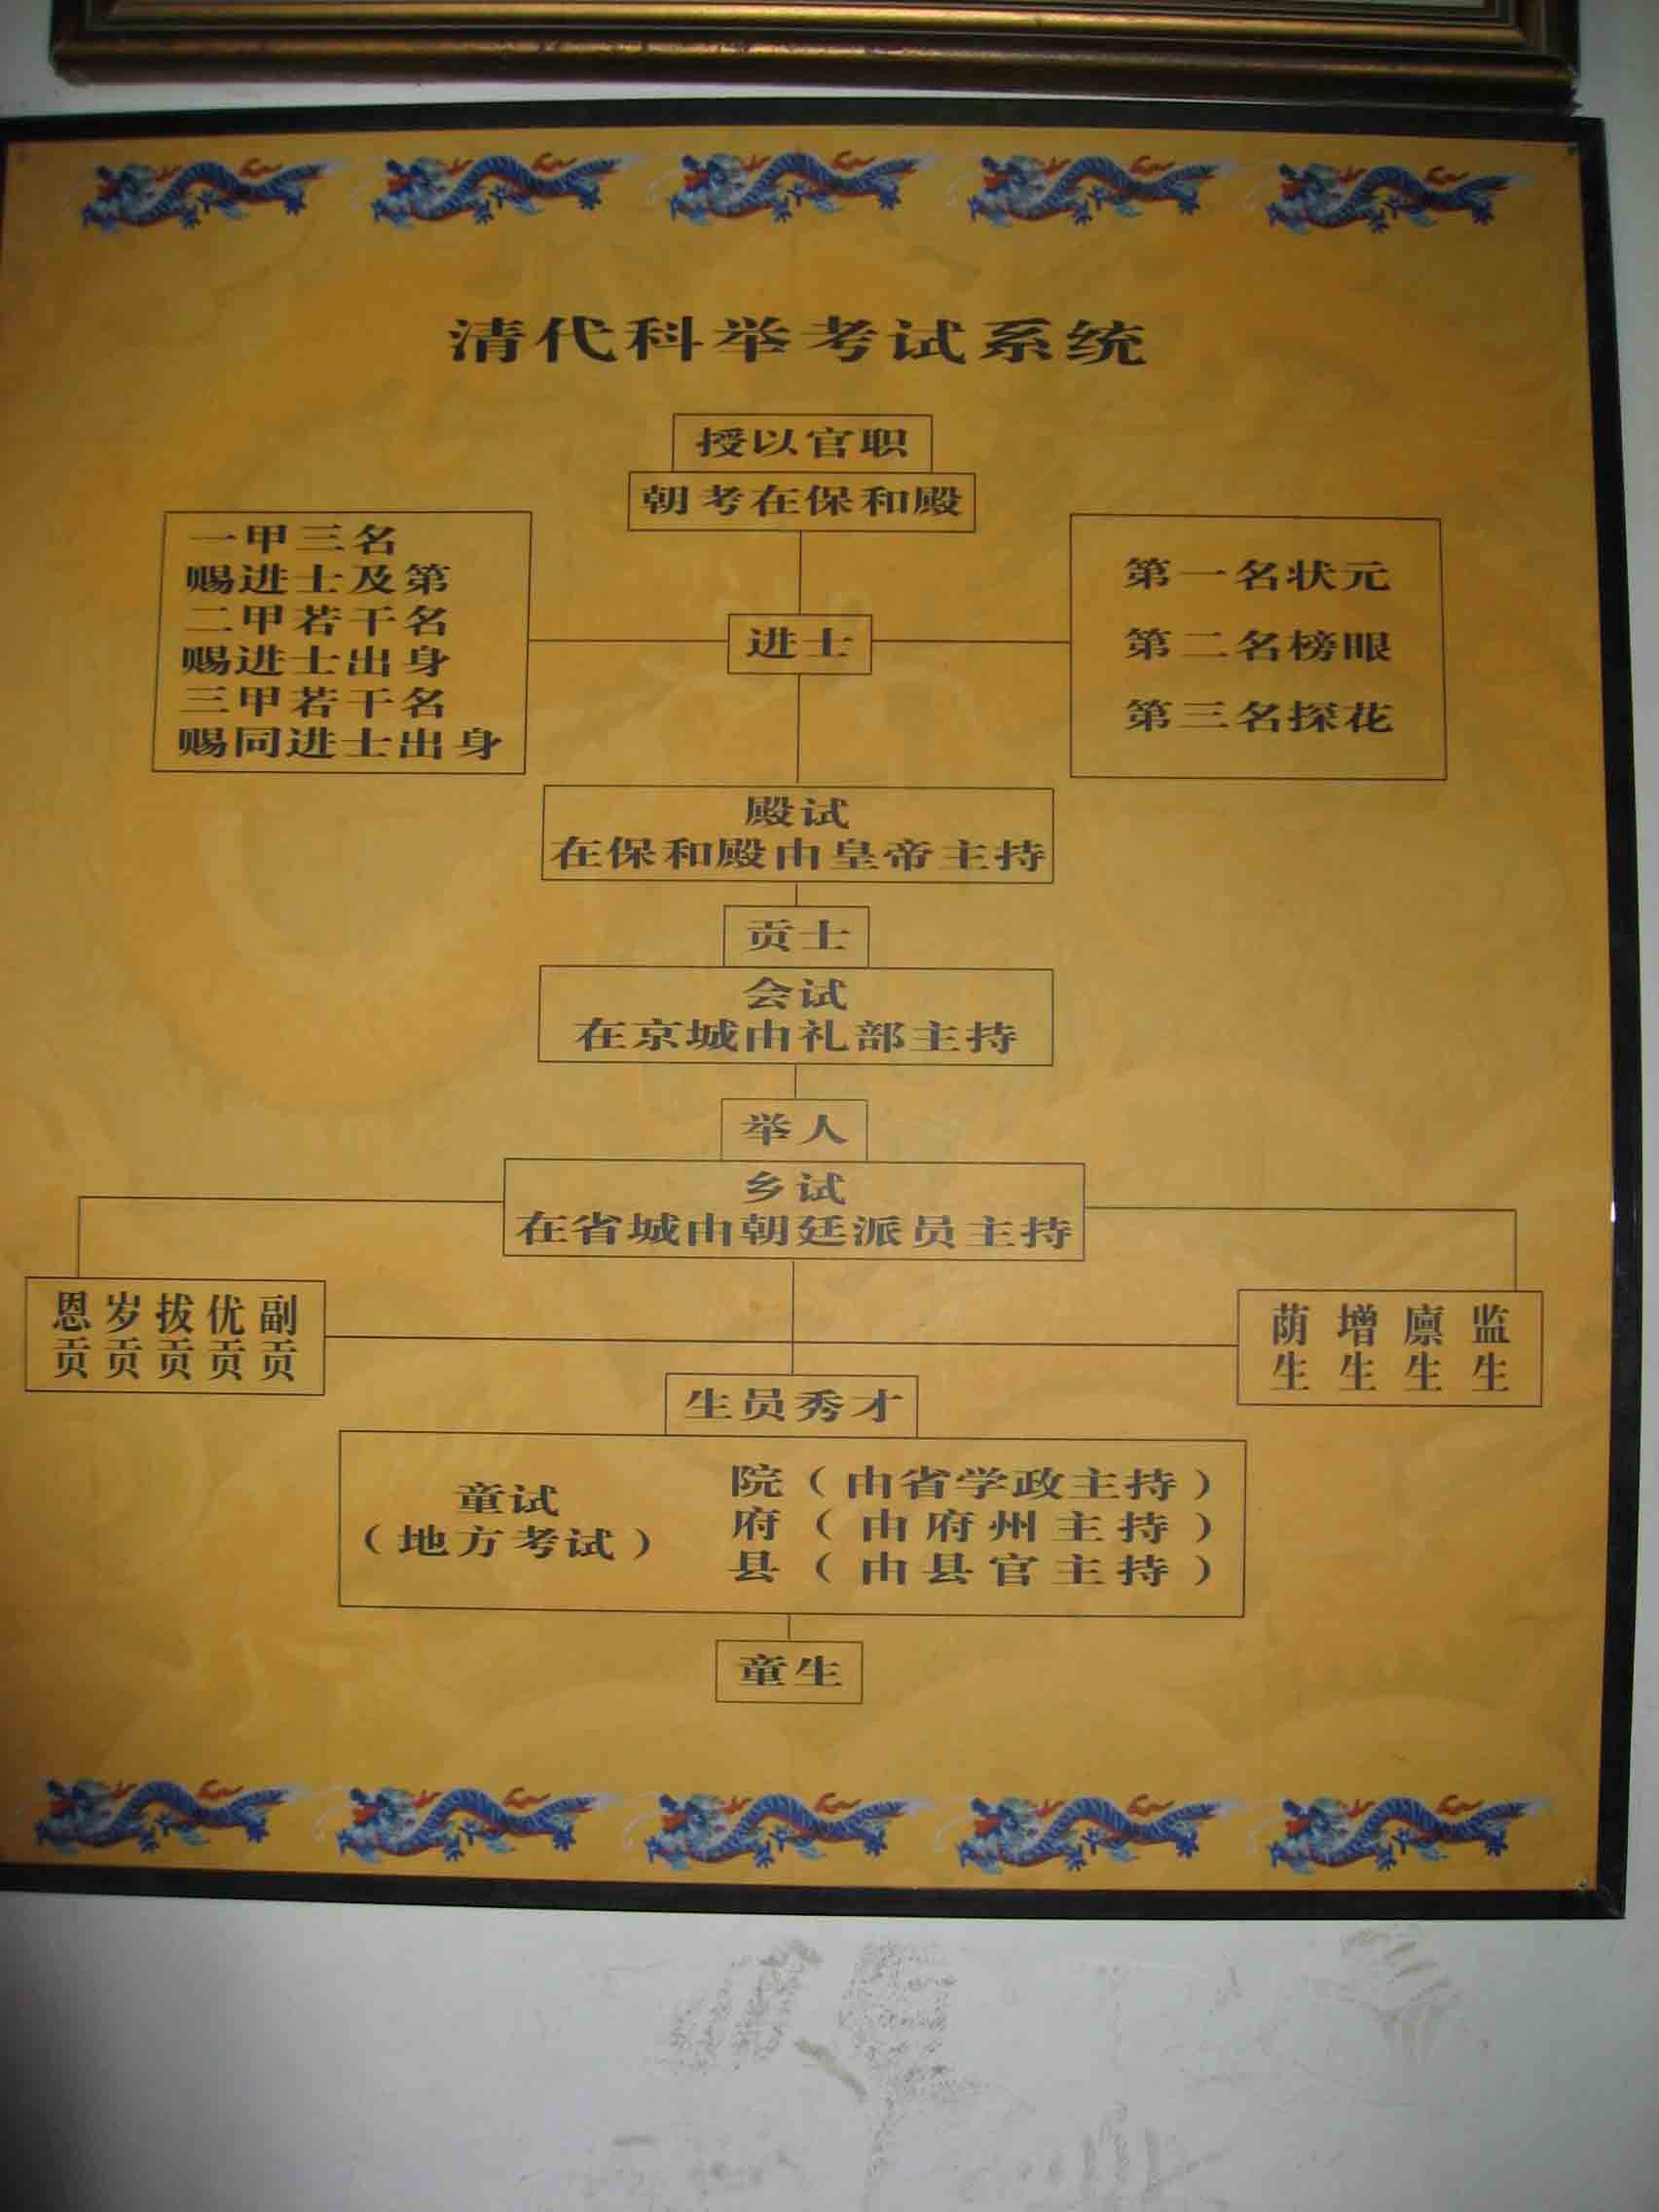 清代科举考试系统
授以官职
朝考在保和殿
一甲三名
赐进士及第
二甲若干名
赐进士出身
三甲若干名
赐同进士出身
进士
第一名状元
第二名榜眼
第三名探花
殿试
在保和殿由皇帝主持
贡士
会试
在京城由礼部主持
举人
乡试
在省城由朝廷派员主持
恩贡
岁贡
拔贡
优贡
副贡
荫生
增生
廪生
监生
生员秀才
童试
（地方考试）
院（由省学政主持）
府（由府州主持）
县（由县官主持）
童生